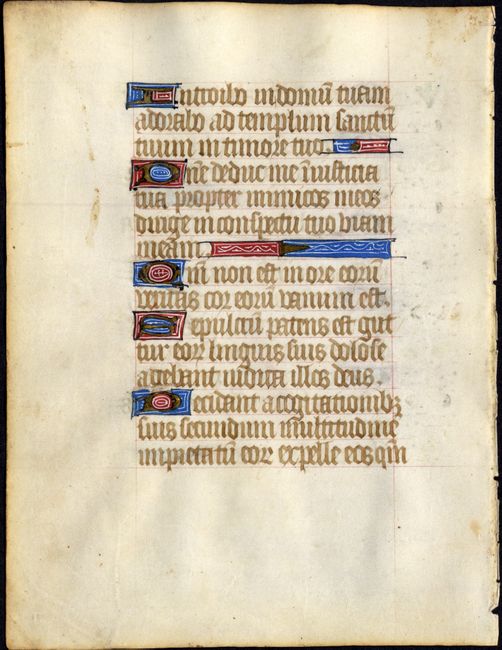 Introibo in domū tuam
adorabo ad templum sanctū
tuum in timore tuo.
Dn̄e deduc me ī iusticia
tua propter inimicos meos
dirige in conspectu tuo viam
meam.
Qm̄ non est in ore eorū
veritas cor eorū vanum est.
Sepulcrū patens est gut
tur eoꝝ linguis suis dolose
agebant iudica illos deus.
Decidant a cogitationibꝫ
suis secundum multitudinē
impietatū eoꝝ expelle eos qm̄